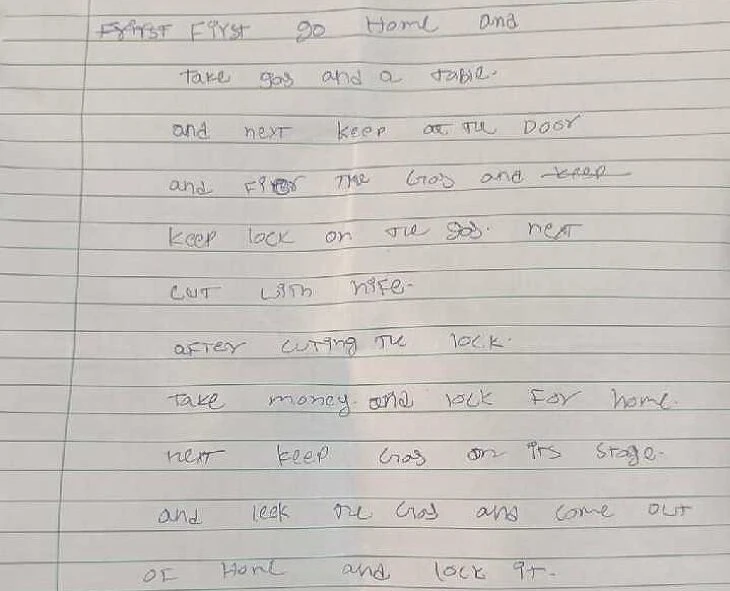 First First go Home and
take gas and a table.
and next keep at the Door
and Fier the Gas and keep
keep lock on the gas. next
cut with nife.
after cuting the lock.
take money and lock for home.
next keep Gas on its stage.
and leek the Gas and come out
of Home and lock it.